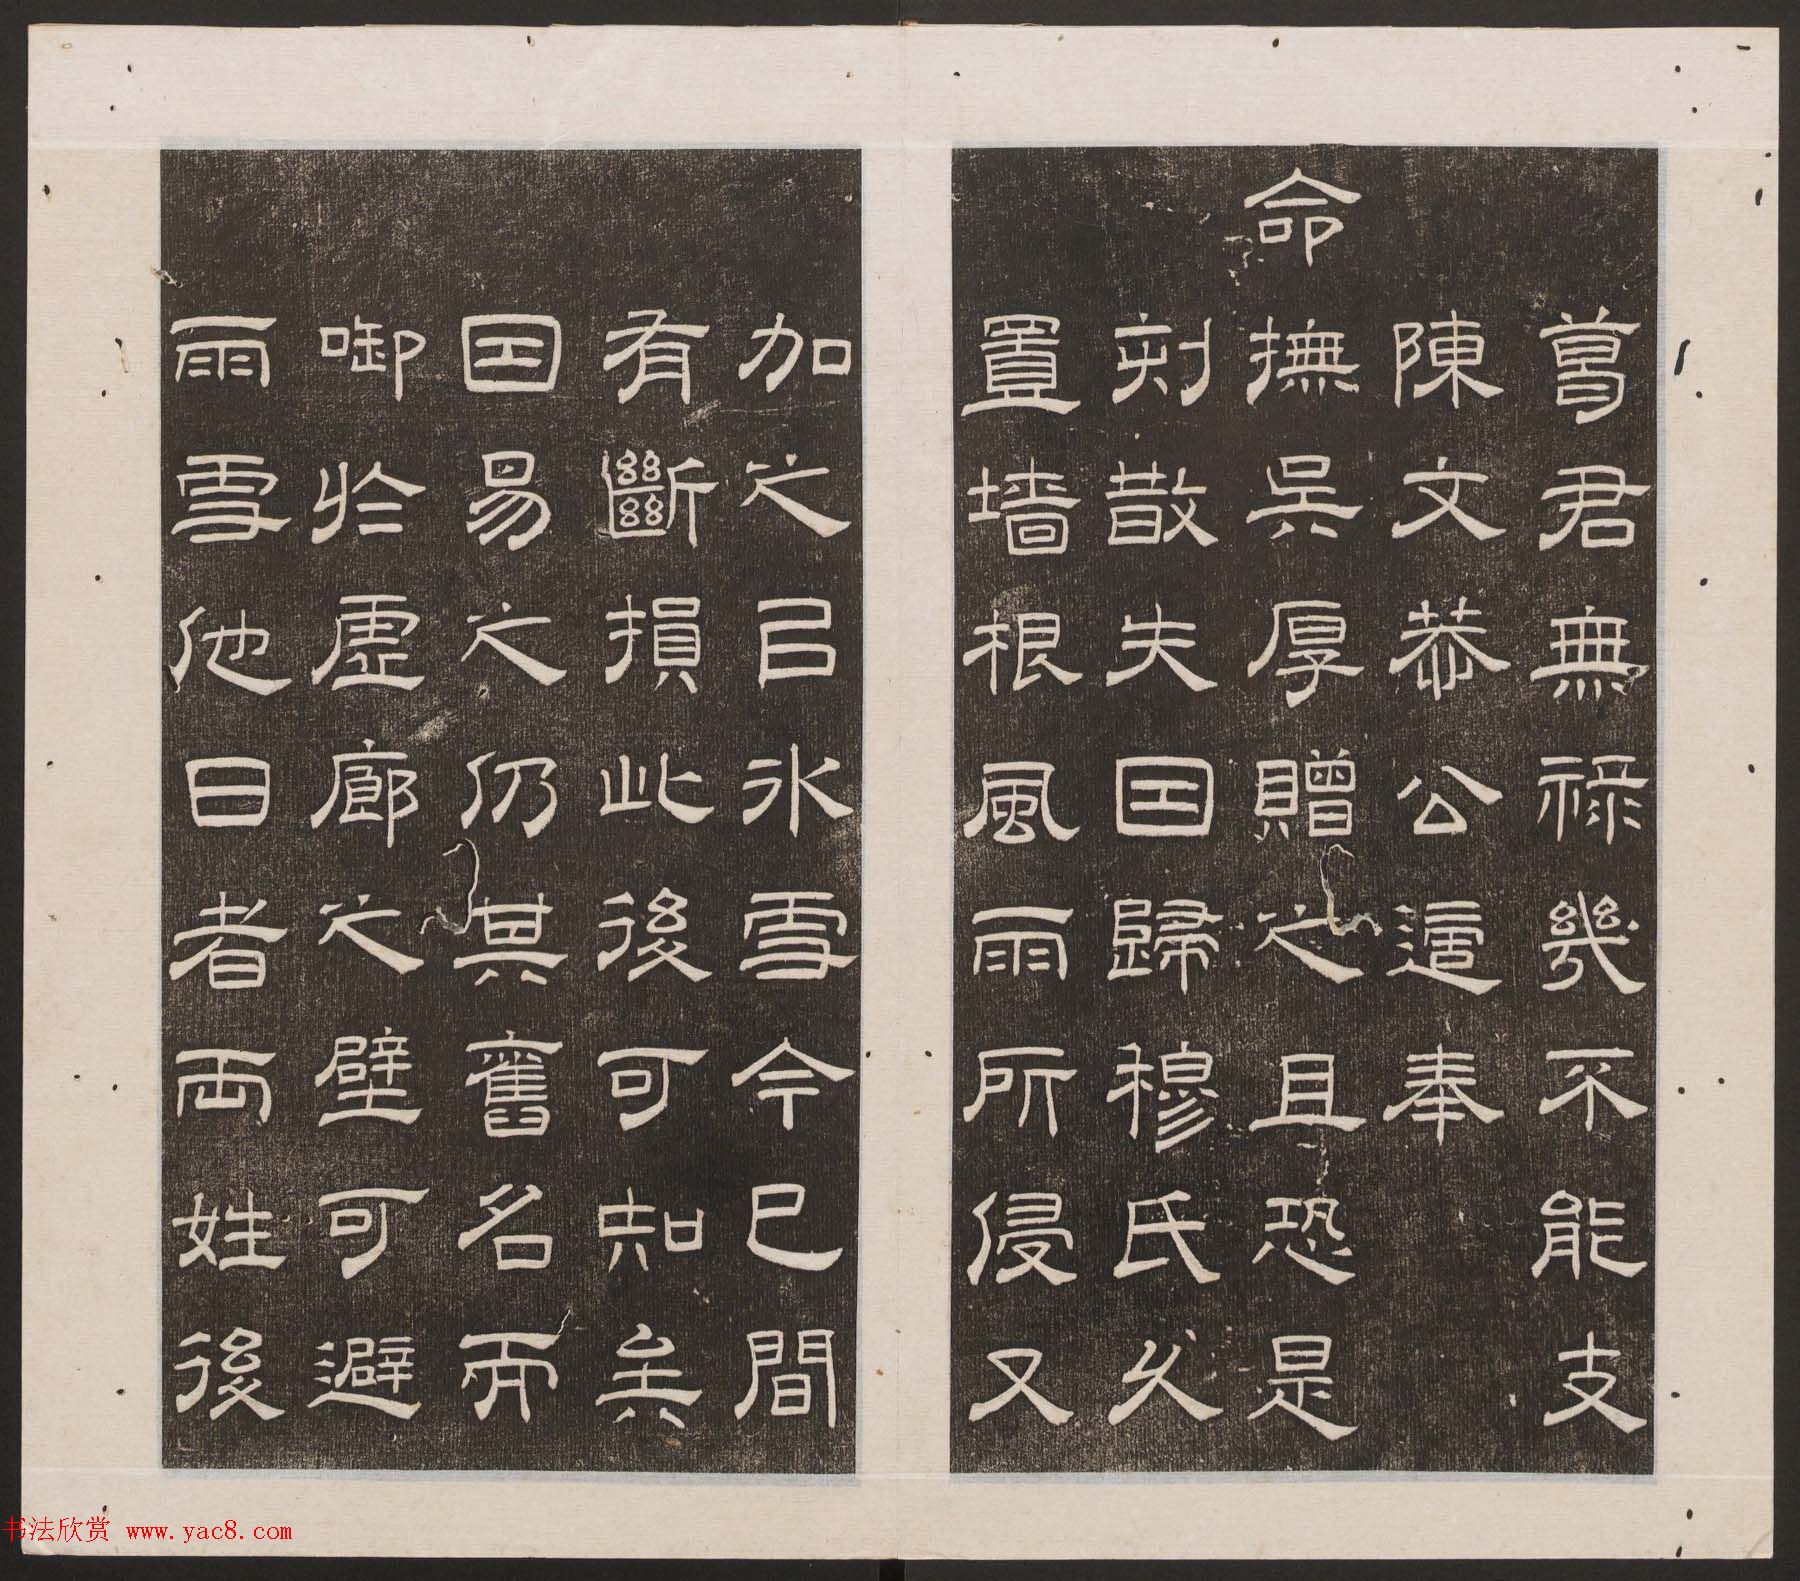 葛君無祿幾不能支
陳文恭公適奉
命撫吳厚贈之且恐是
刻散失因歸穆氏久
置墻根風雨所侵又
加之㠯冰雪今已間
有斷損此後可知矣
因易之仍其舊名而
啣於虛廊之壁可避
雨雪他日者両姓後
书法欣赏 www.yac8.com